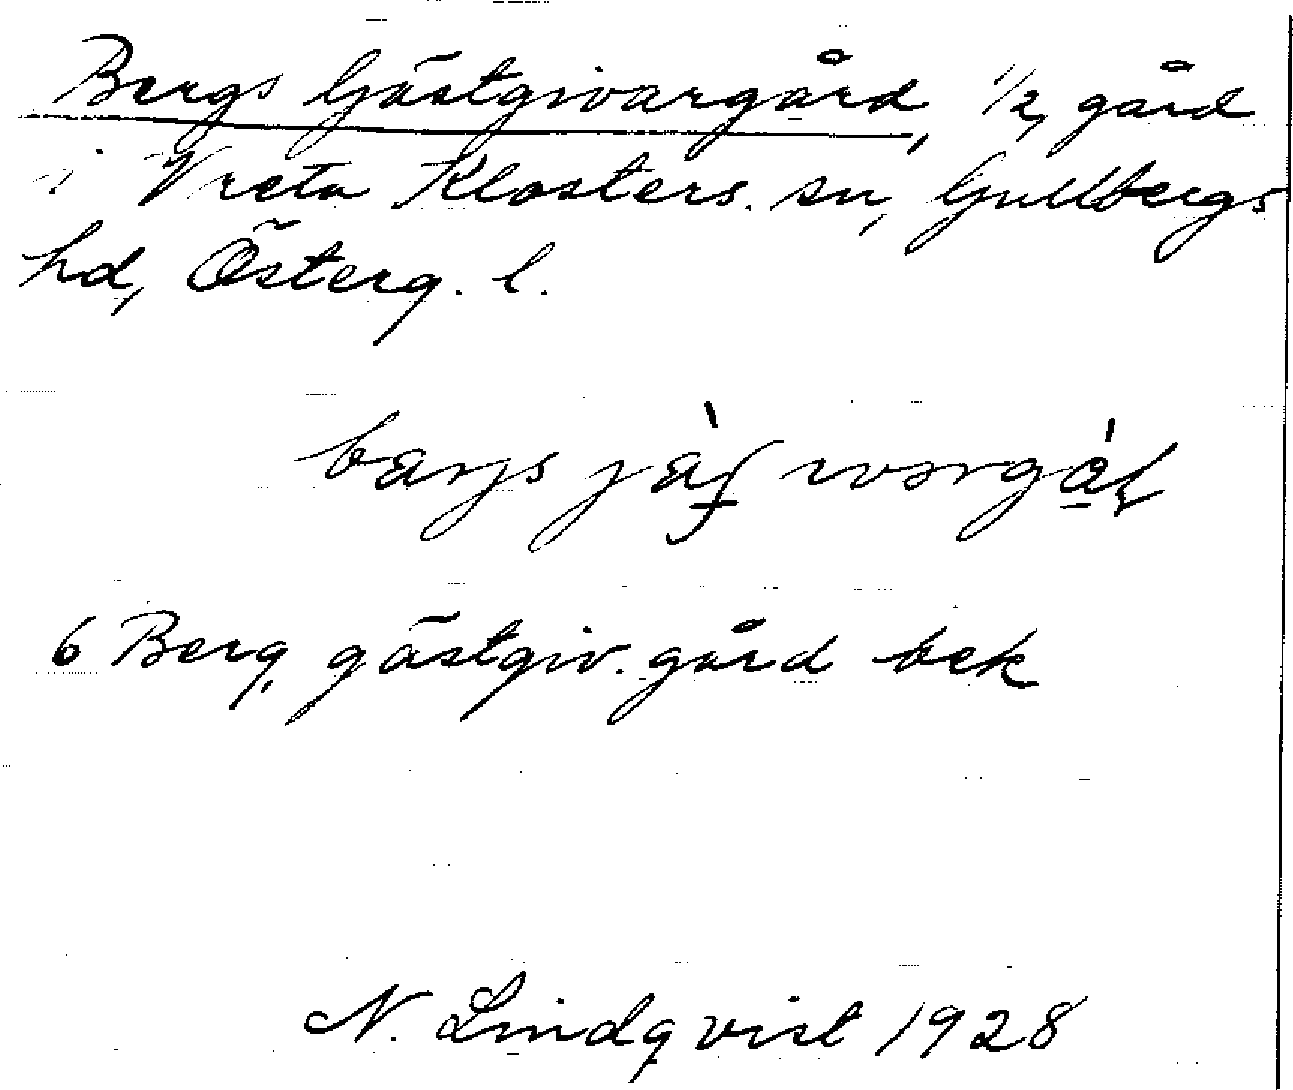 Bergs Gästgivargård, 1/2 gård
i Vreta Klosters sn, Gullbergs
hd, Österg. l.
6 Berg, gästgiv. gård bek
N. Lindqvist 1928